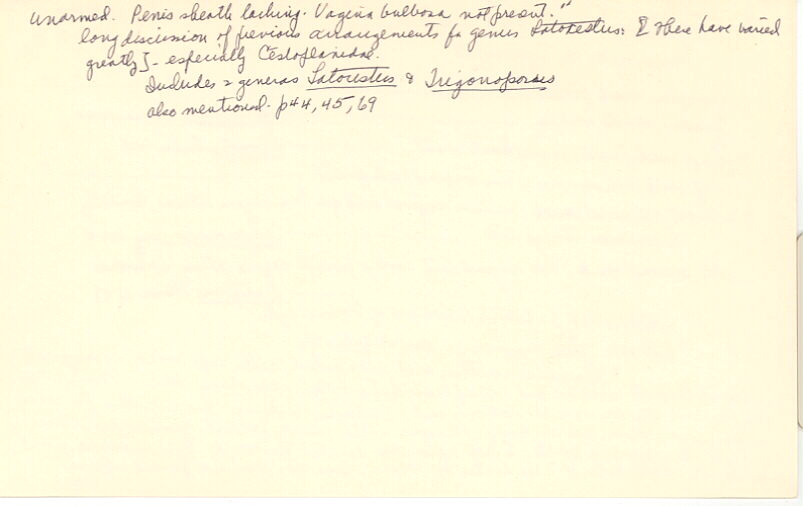 unarmed. Penis sheath lacking. Vagina bulbosa not present."
long discussion of previous arrangements for genus Latocestus: [these have varied
greatly] - especially Cestoplanidae.
Includes 2 generas Latocestus & Trigonoporus
also mentioned. p44, 45, 69